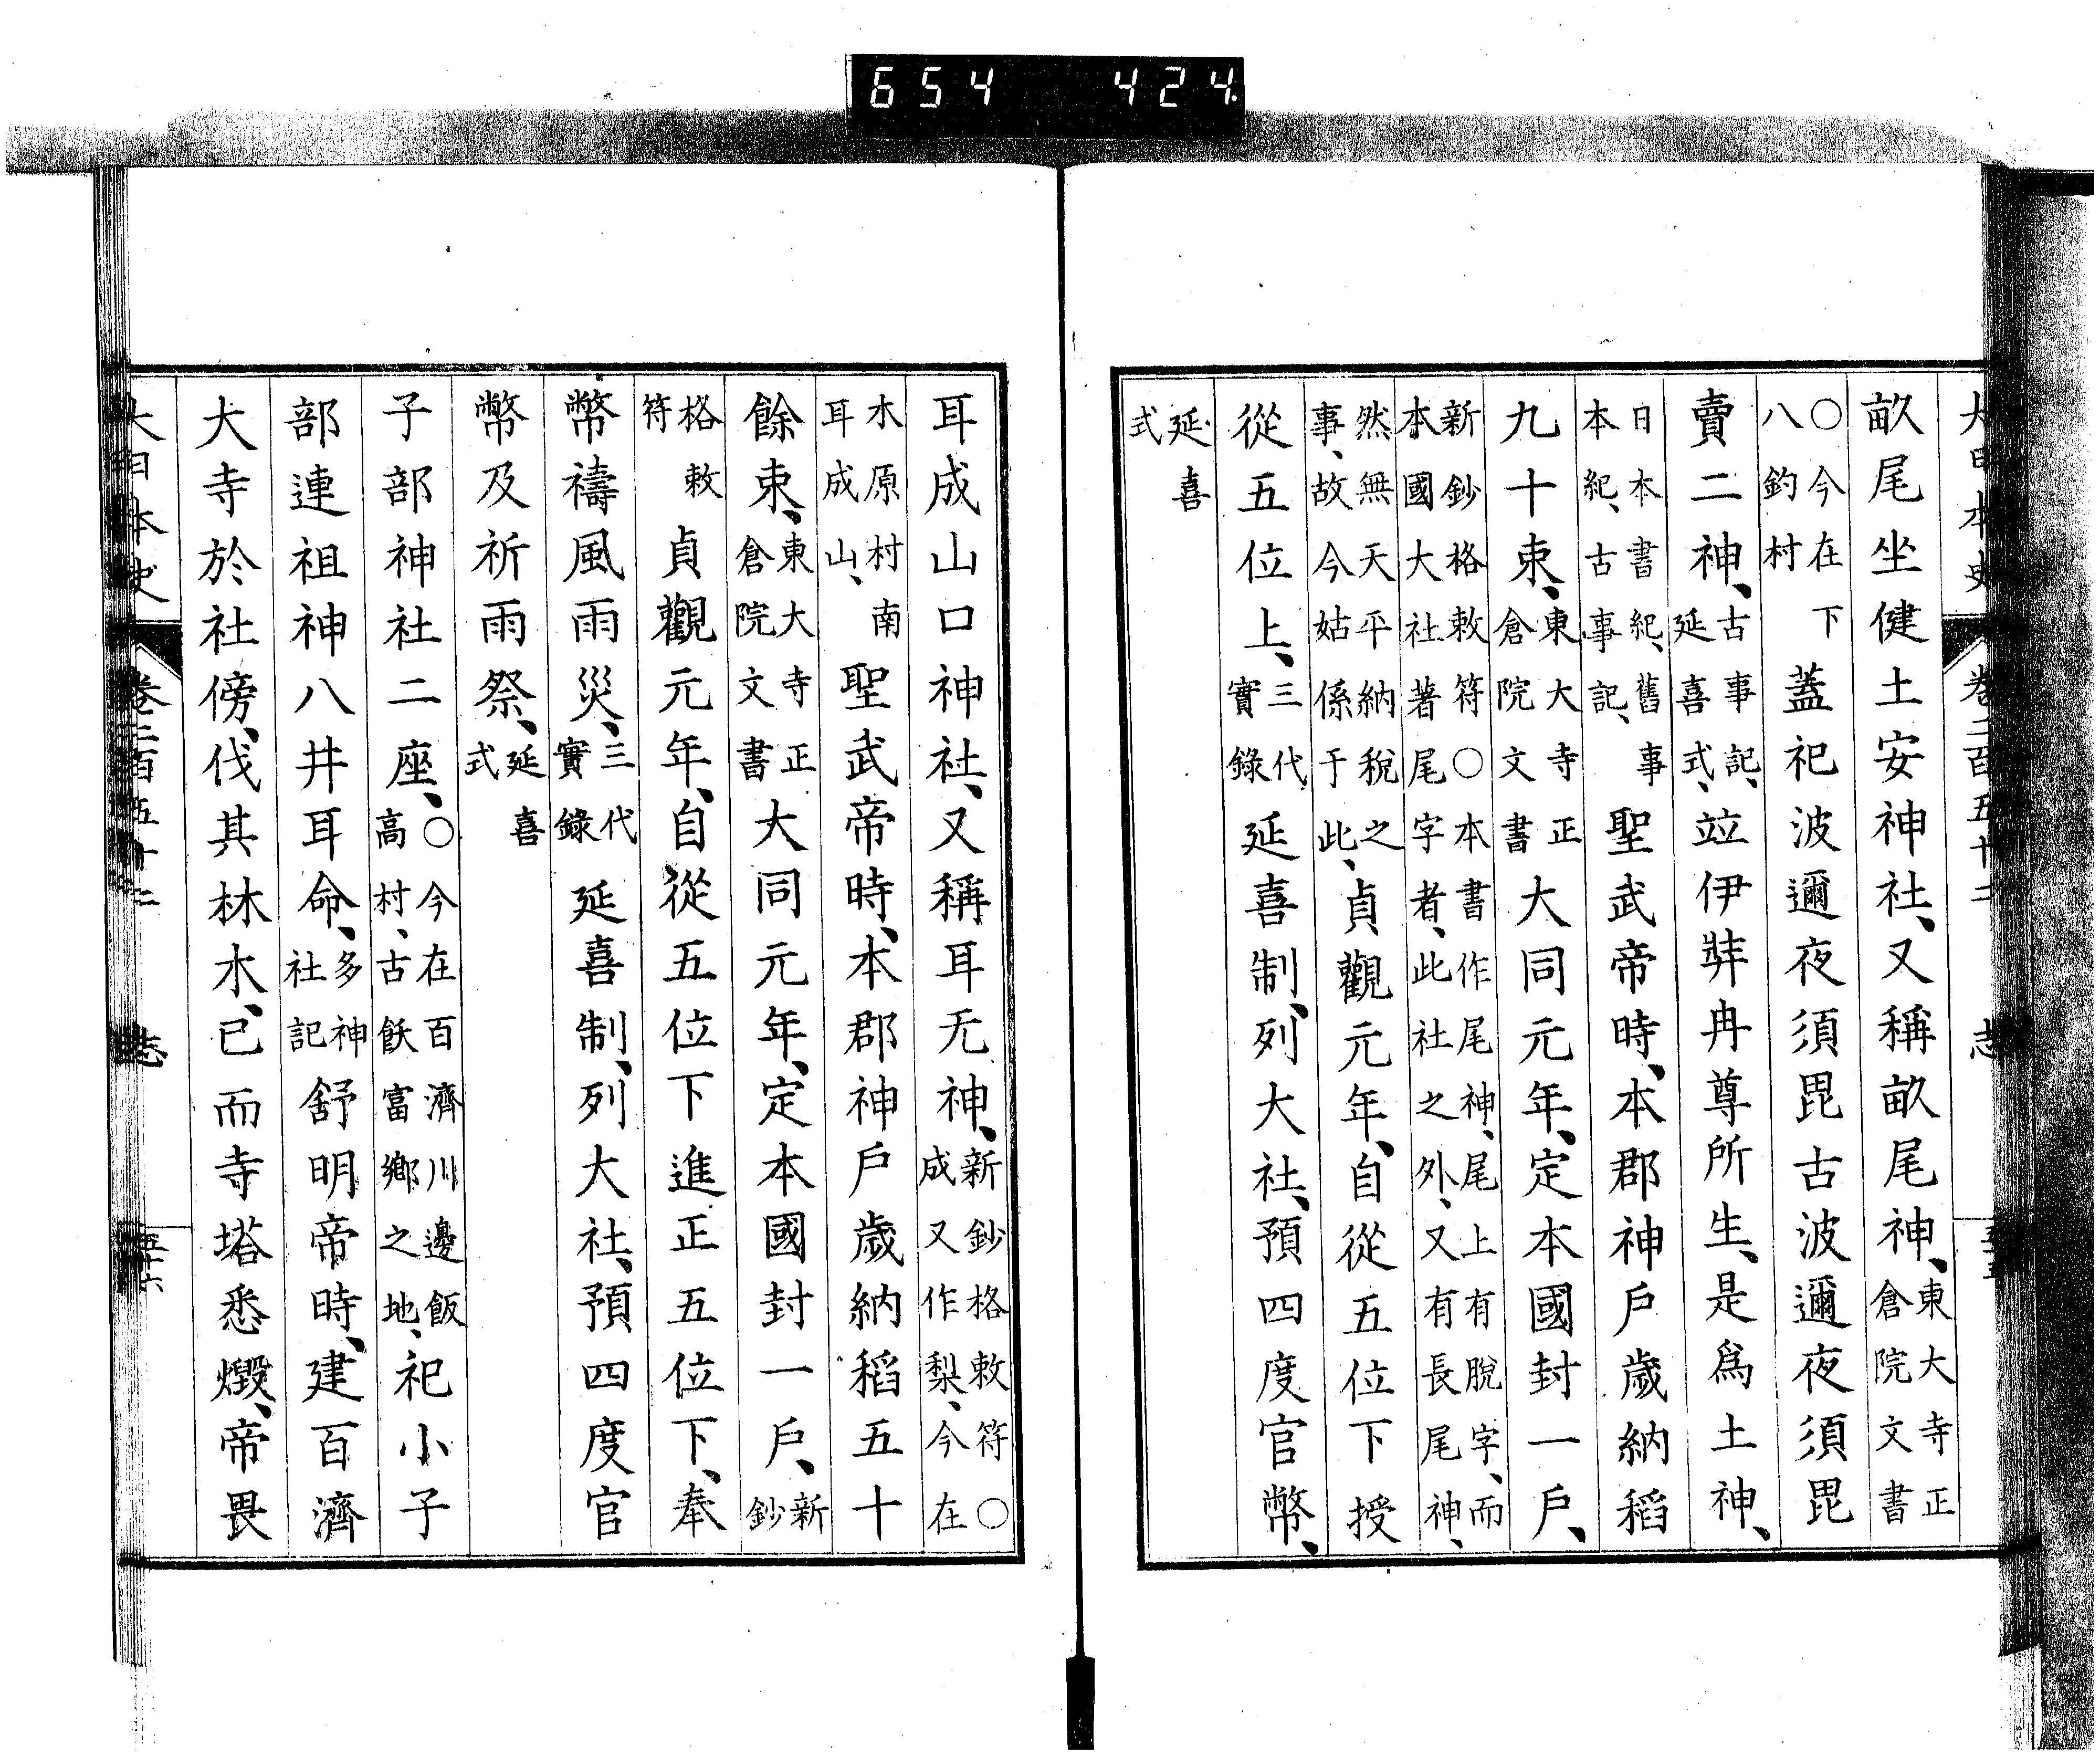 大日本史 卷二百五十二 志 五十五
畝尾坐健土安神社、又稱畝尾神、東大寺正倉院文書
○今在下八釣村蓋祀波邇夜須毘古波邇夜須毘
賣二神、古事記、延喜式、竝伊弉冉尊所生、是爲土神、
日本書紀、舊事本紀、古事記、聖武帝時、本郡神戶歲納稻
九十束、東大寺正倉院文書大同元年、定本國封一戶、
新鈔格敕符○本書作尾神、尾上有脫字、而本國大社著尾字者、此社之外、又有長尾神、
然無天平納稅之事、故今姑係于此、貞觀元年、自從五位下授
從五位上、三代實錄延喜制、列大社、預四度官幣、
延喜式
耳成山口神社、又稱耳无神、新鈔格敕符○成又作梨、今在
木原村南耳成山、聖武帝時、本郡神戶歲納稻五十
餘束、東大寺正倉院文書大同元年、定本國封一戶、新鈔
格敕符貞觀元年、自從五位下進正五位下、奉
幣禱風雨災、三代實錄延喜制、列大社、預四度官
幣及祈雨祭、延喜式
子部神社二座、○今在百濟川邊飯高村、古飫富鄉之地、祀小子
部連祖神八井耳命、多神社記舒明帝時、建百濟
大寺於社傍、伐其林木、已而寺塔悉燬、帝畏
大日本史 卷二百五十二 志 五十六
654 424